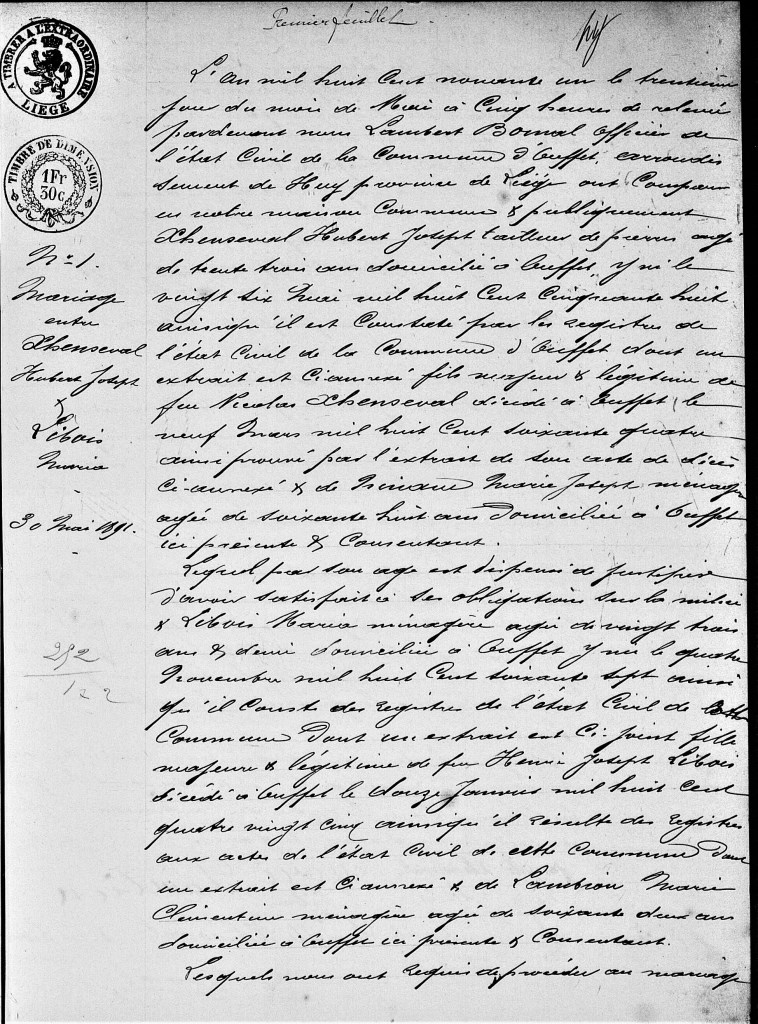 Premier feuillet.
A TIMBRER A L'EXTRAORDINAIRE
LIEGE
TIMBRE DE DIMENSION
1Fr
30c
N° 1.
Mariage
entre
Xhenseval
Hubert Joseph
&
Libois
Maria
30 Mai 1891.
252
122
L'An mil huit Cent nonante un le trentième
jour du mois de Mai à Cinq heures de relevée
pardevant nous Lambert Bomal Officier de
l'état Civil de la Commune d'Ouffet, arrondis
sement de Huy province de Liège ont Comparu
en notre maison Commune & publiquement
Xhenseval Hubert Joseph tailleur de pierres agé
de trente trois ans domicilié à Ouffet, y né le
vingt six Mai mil huit Cent Cinquante huit
ainsiqu'il est Constaté par les registres de
l'état Civil de la Commune d'Ouffet dont un
extrait est Ciannexé fils majeur & légitime de
feu Nicolas Xhenseval décédé à Ouffet, le
neuf Mars mil huit Cent soixante quatre
ainsi prouvé par l'extrait de son acte de décès
Ci-annexé & de Marie Joseph ménagère
agée de soixante huit ans domiciliée à Ouffet
ici présente & Consentant.
Lequel par son age est dispensé de justifier
d'avoir satisfait à ses obligations sur la milice
& Libois Maria ménagère agée de vingt trois
ans & demi domiciliée à Ouffet y née le quatre
Novembre mil huit Cent soixante sept ainsi
qu'il Conste des registres de l'état Civil de cette
Commune Dont un extrait est Ci-joint fille
majeure & légitime de feu Henri Joseph Libois
décédé à Ouffet le douze Janvier mil huit Cent
quatre vingt Cinq ainsiqu'il résulte des registres
aux actes de l'état Civil de cette Commune dont
un extrait est Ciannexé & de Lambion Marie
Clémentine ménagère agée de soixante deux ans
domiciliée à Ouffet ici présente & Consentant.
Lesquels nous ont requis de procéder au mariage